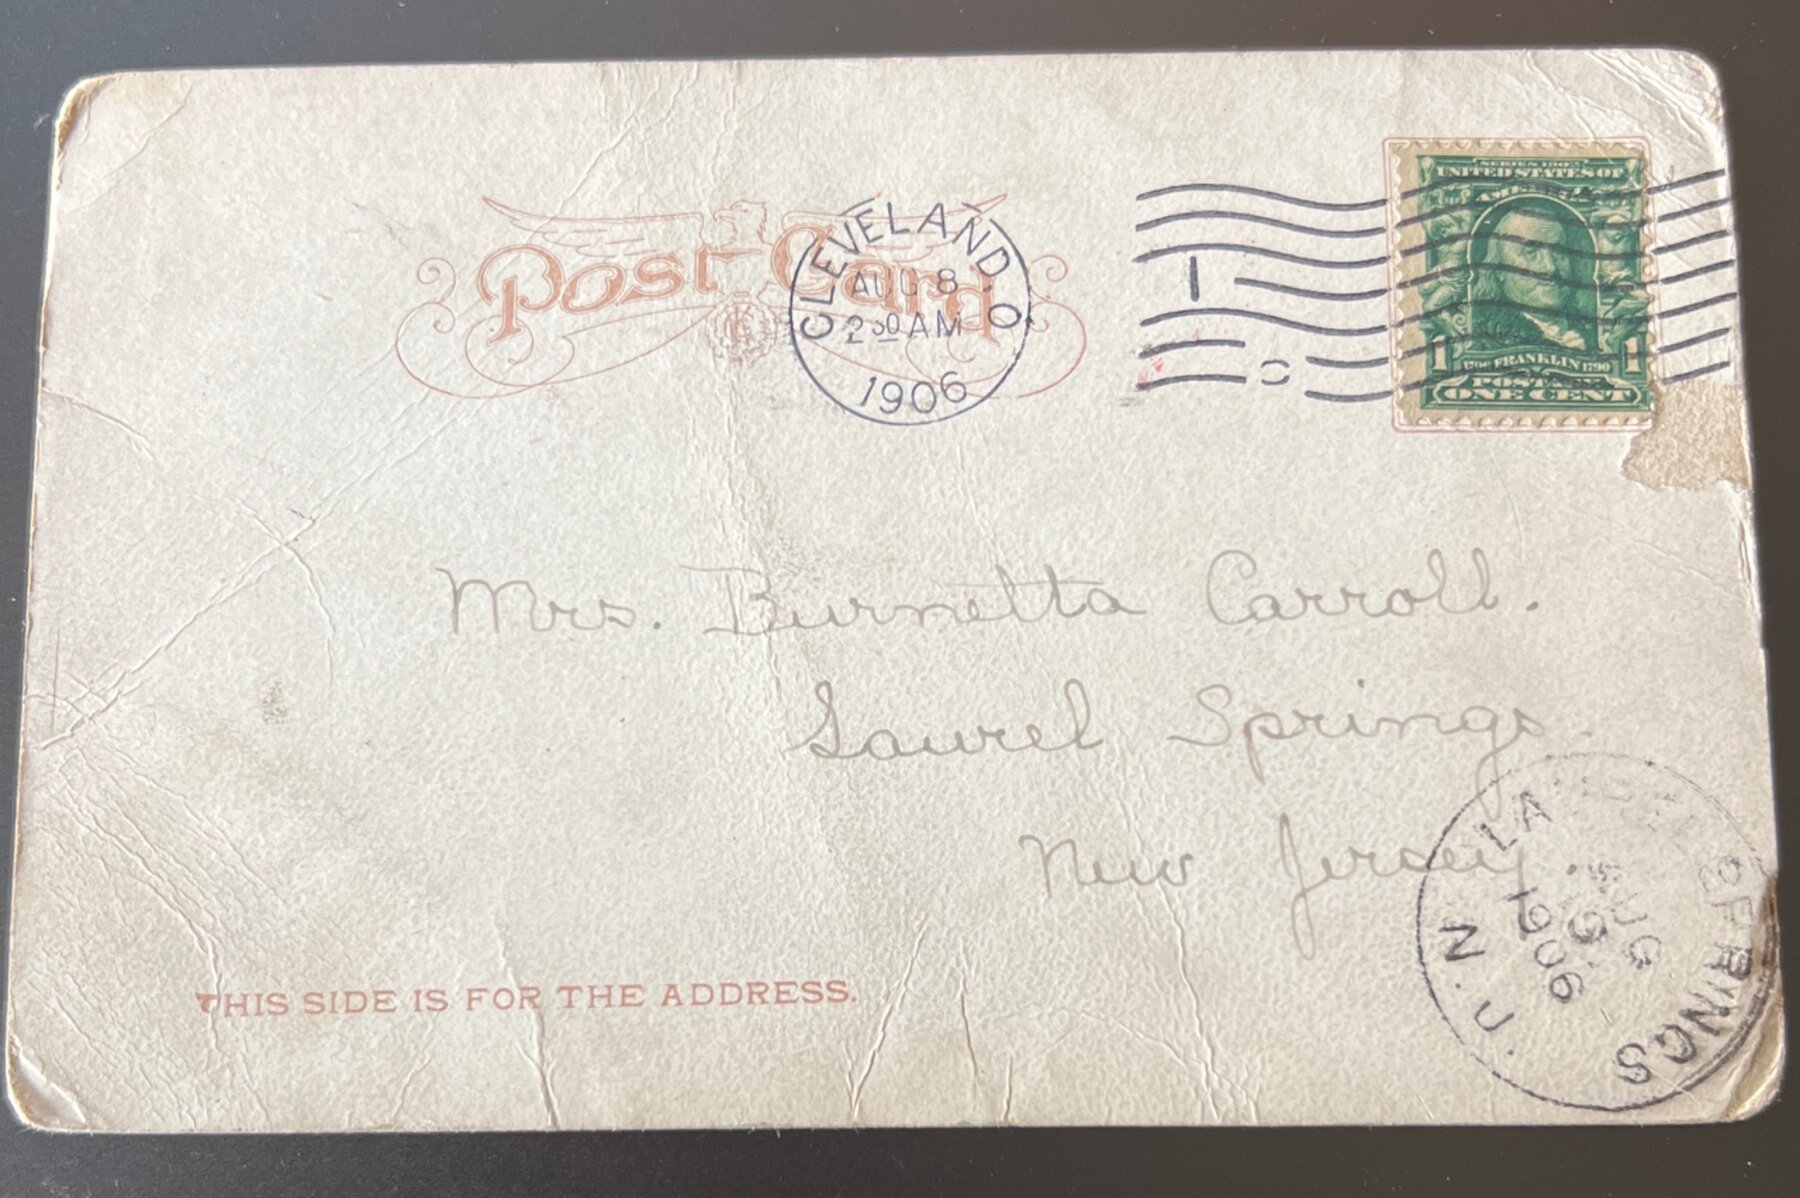 Post Card
CLEVELAND, O
AUG 8
2 30 AM
1906
1
C
SERIES 1902
UNITED STATES OF
AMERICA
1706 FRANKLIN 1790
1 1
POSTAGE
ONE CENT
Mrs. Burnetta Carroll.
Laurel Springs.
New Jersey.
THIS SIDE IS FOR THE ADDRESS.
LAUREL SPRINGS
N.J.
AUG
9
1906